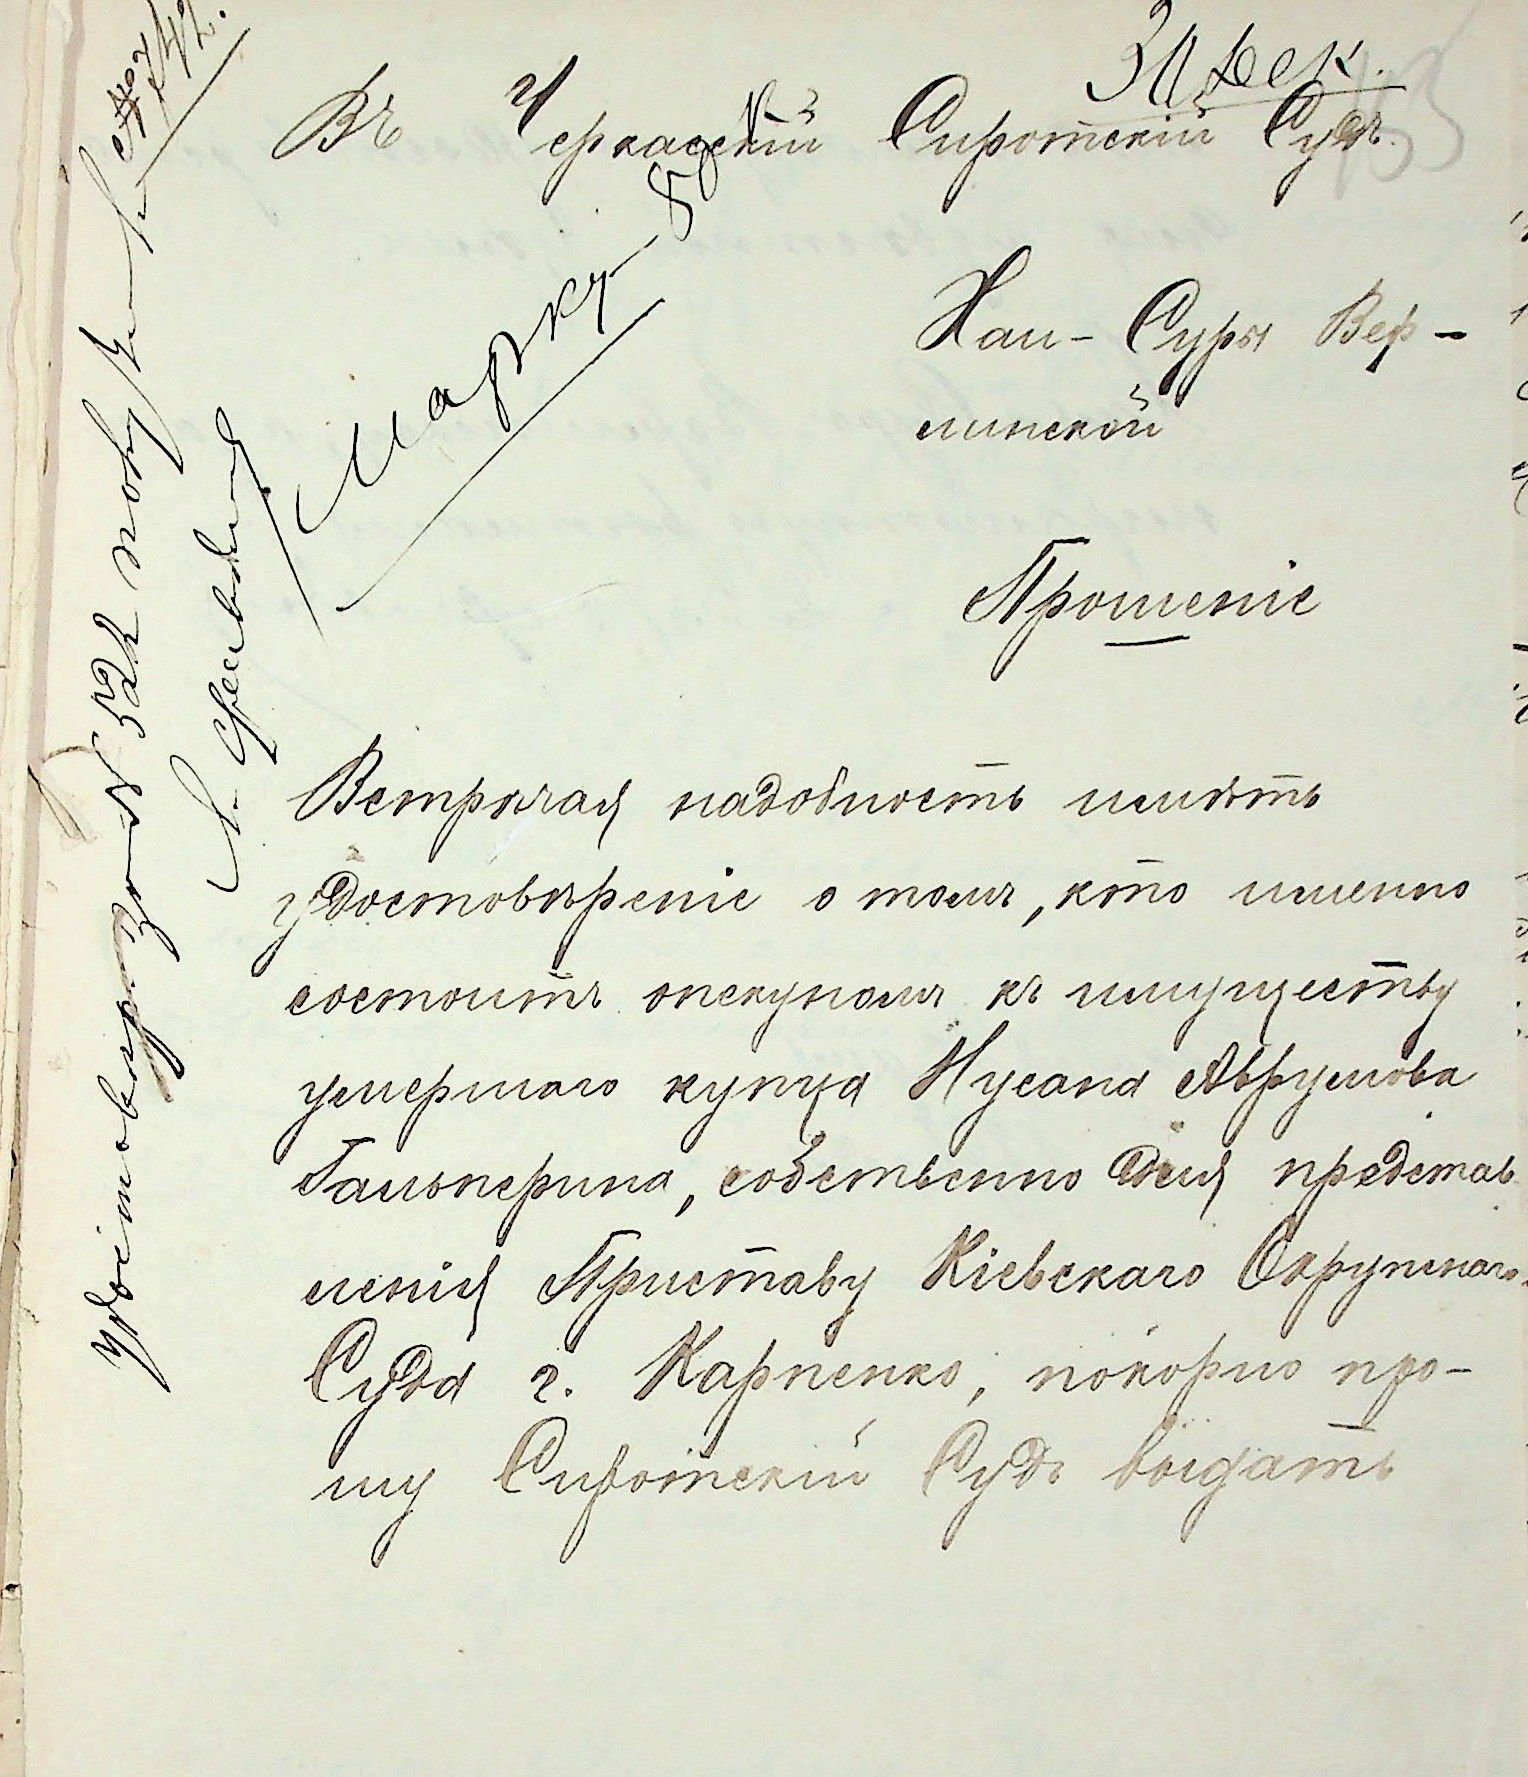 31 Дек.
Въ Черкасскій Сиротскій Судъ.
Хаи-Суры Вер-
линской
Прошеніе
Встрѣчая надобность имѣть
удостовѣреніе о томъ, кто именно
состоитъ опекуномъ къ имуществу
умершаго купца Нусана Аврумова
Гальперина, собственно для представ
ленія Приставу Кіевскаго Окружнаго
Суда г. Карпенко, покорно про-
шу Сиротскій Судъ выдать
Марку
Удостовѣр. за № 522